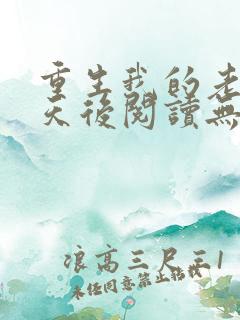 重生我的老
天後閱讀無
浪高三尺三1
未经同意禁止转载